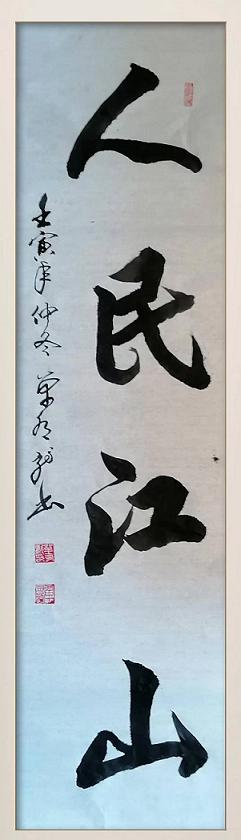 人民江山
壬寅年仲冬